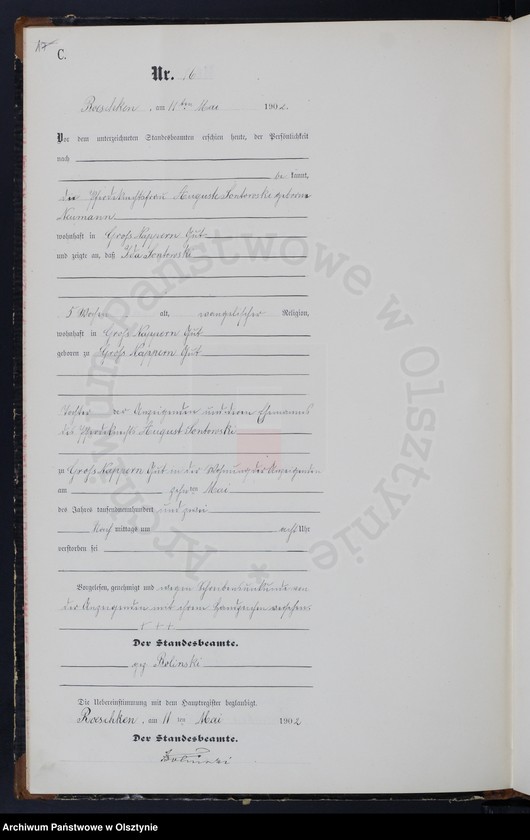 17
C.
Nr. 16
Roeschken, am 11ten Mai 1902.
Vor dem unterzeichneten Standesbeamten erschien heute, der Persönlichkeit
nach
be kannt,
die Pferdeknechtsfrau Auguste Sontowski geborene
Neumann
wohnhaft in Groß Kappern Gut
und zeigte an, daß Ida Sontowski
5 Wochen alt, evangelischer Religion,
wohnhaft in Groß Kappern Gut
geboren zu Groß Kappern Gut
Tochter der Anzeigenden und deren Ehemannes
des Pferdeknechts August Sontowski
zu Groß Kappern Gut in der Wohnung der Anzeigenden
am zehnten Mai
des Jahres tausendneunhundert und zwei
Nach mittags um acht Uhr
verstorben sei
Vorgelesen, genehmigt und wegen Schreibensunkunde von
der Anzeigenden mit ihrem Handzeichen versehen.
+++
Der Standesbeamte.
gez
Die Uebereinstimmung mit dem Hauptregister beglaubigt.
Roeschken, am 11ten Mai 1902
Der Standesbeamte.
Archiwum Państwowe w Olsztynie
Archiwum Państwowe w Olsztynie *